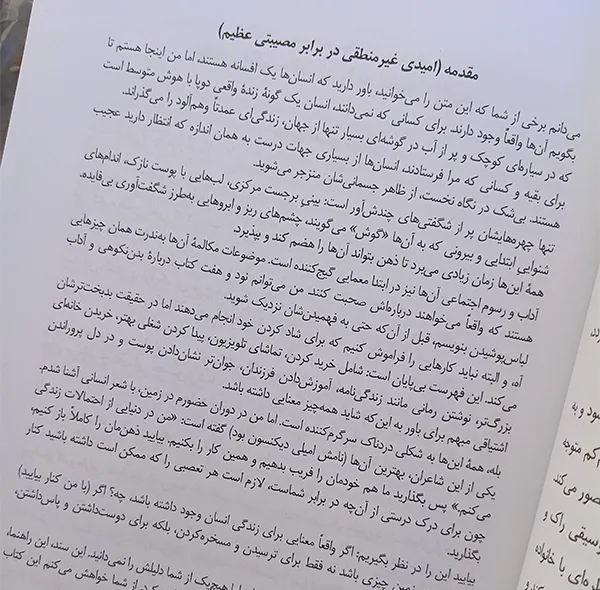 مقدمه (امیدی غیرمنطقی در برابر مصیبتی عظیم)
می‌دانم برخی از شما که این متن را می‌خوانید، باور دارید که انسان‌ها یک افسانه هستند، اما من اینجا هستم تا
بگویم آن‌ها واقعاً وجود دارند. برای کسانی که نمی‌دانند، انسان یک گونهٔ زندهٔ واقعی دوپا با هوش متوسط است
که در سیاره‌ای کوچک و پر از آب در گوشه‌ای بسیار تنها از جهان، زندگی‌ای عمدتاً وهم‌آلود را می‌گذراند.
برای بقیه و کسانی که مرا فرستادند، انسان‌ها از بسیاری جهات درست به همان اندازه که انتظار دارید عجیب
هستند. بی‌شک در نگاه نخست، از ظاهر جسمانی‌شان منزجر می‌شوید.
تنها چهره‌هایشان پر از شگفتی‌های چندش‌آور است: بینیِ برجست مرکزی، لب‌هایی با پوست نازک، اندام‌های
شنوایی ابتدایی و بیرونی که به آن‌ها «گوش» می‌گویند، چشم‌های ریز و ابروهایی به‌طرز شگفت‌آوری بی‌فایده.
همهٔ این‌ها زمان زیادی می‌برد تا ذهن بتواند آن‌ها را هضم کند و بپذیرد
آداب و رسوم اجتماعی آن‌ها نیز در ابتدا معمایی گیج‌کننده است. موضوعات مکالمهٔ آن‌ها به‌ندرت همان چیزهایی
هستند که واقعاً می‌خواهند درباره‌اش صحبت کنند. من می‌توانم نود و هفت کتاب دربارهٔ بدن‌نکوهی و آداب
لباس‌پوشیدن بنویسم، قبل از آن‌که حتی به فهمیدن‌شان نزدیک شوید.
آه، و البته نباید کارهایی را فراموش کنیم که برای شاد کردن خود انجام می‌دهند اما در حقیقت بدبخت‌ترشان
می‌کند. این فهرست بی‌پایان است: شامل خرید کردن، تماشای تلویزیون، پیدا کردن شغلی بهتر، خریدن خانه‌ای
بزرگ‌تر، نوشتن رمانی مانند زندگی‌نامه، آموزش‌دادن فرزندان، جوان‌تر نشان‌دادن پوست و در دل پروراندن
اشتیاقی مبهم برای باور به این‌که شاید همه‌چیز معنایی داشته باشد.
بله، همهٔ این‌ها به شکلی دردناک سرگرم‌کننده است. اما من در دوران حضورم در زمین، با شعر انسانی آشنا شدم.
یکی از این شاعران، بهترین آن‌ها (نامش امیلی دیکنسون بود) گفته است: «من در دنیایی از احتمالات زندگی
می‌کنم.» پس بگذارید ما هم خودمان را فریب بدهیم و همین کار را بکنیم. بیایید ذهن‌مان را کاملاً باز کنیم،
چون برای درک درستی از آن‌چه در برابر شماست، لازم است هر تعصبی را که ممکن است داشته باشید کنار
بگذارید.
بیایید این را در نظر بگیریم: اگر واقعاً معنایی برای زندگی انسان وجود داشته باشد، چه؟ اگر (با من کنار بیایید)
زمین چیزی باشد نه فقط برای ترسیدن و مسخره‌کردن، بلکه برای دوست‌داشتن و پاس‌داشتن،
هیچ‌یک از شما دلیلش را نمی‌دانید. این سند، این راهنما،
از شما خواهش می‌کنم این کتاب